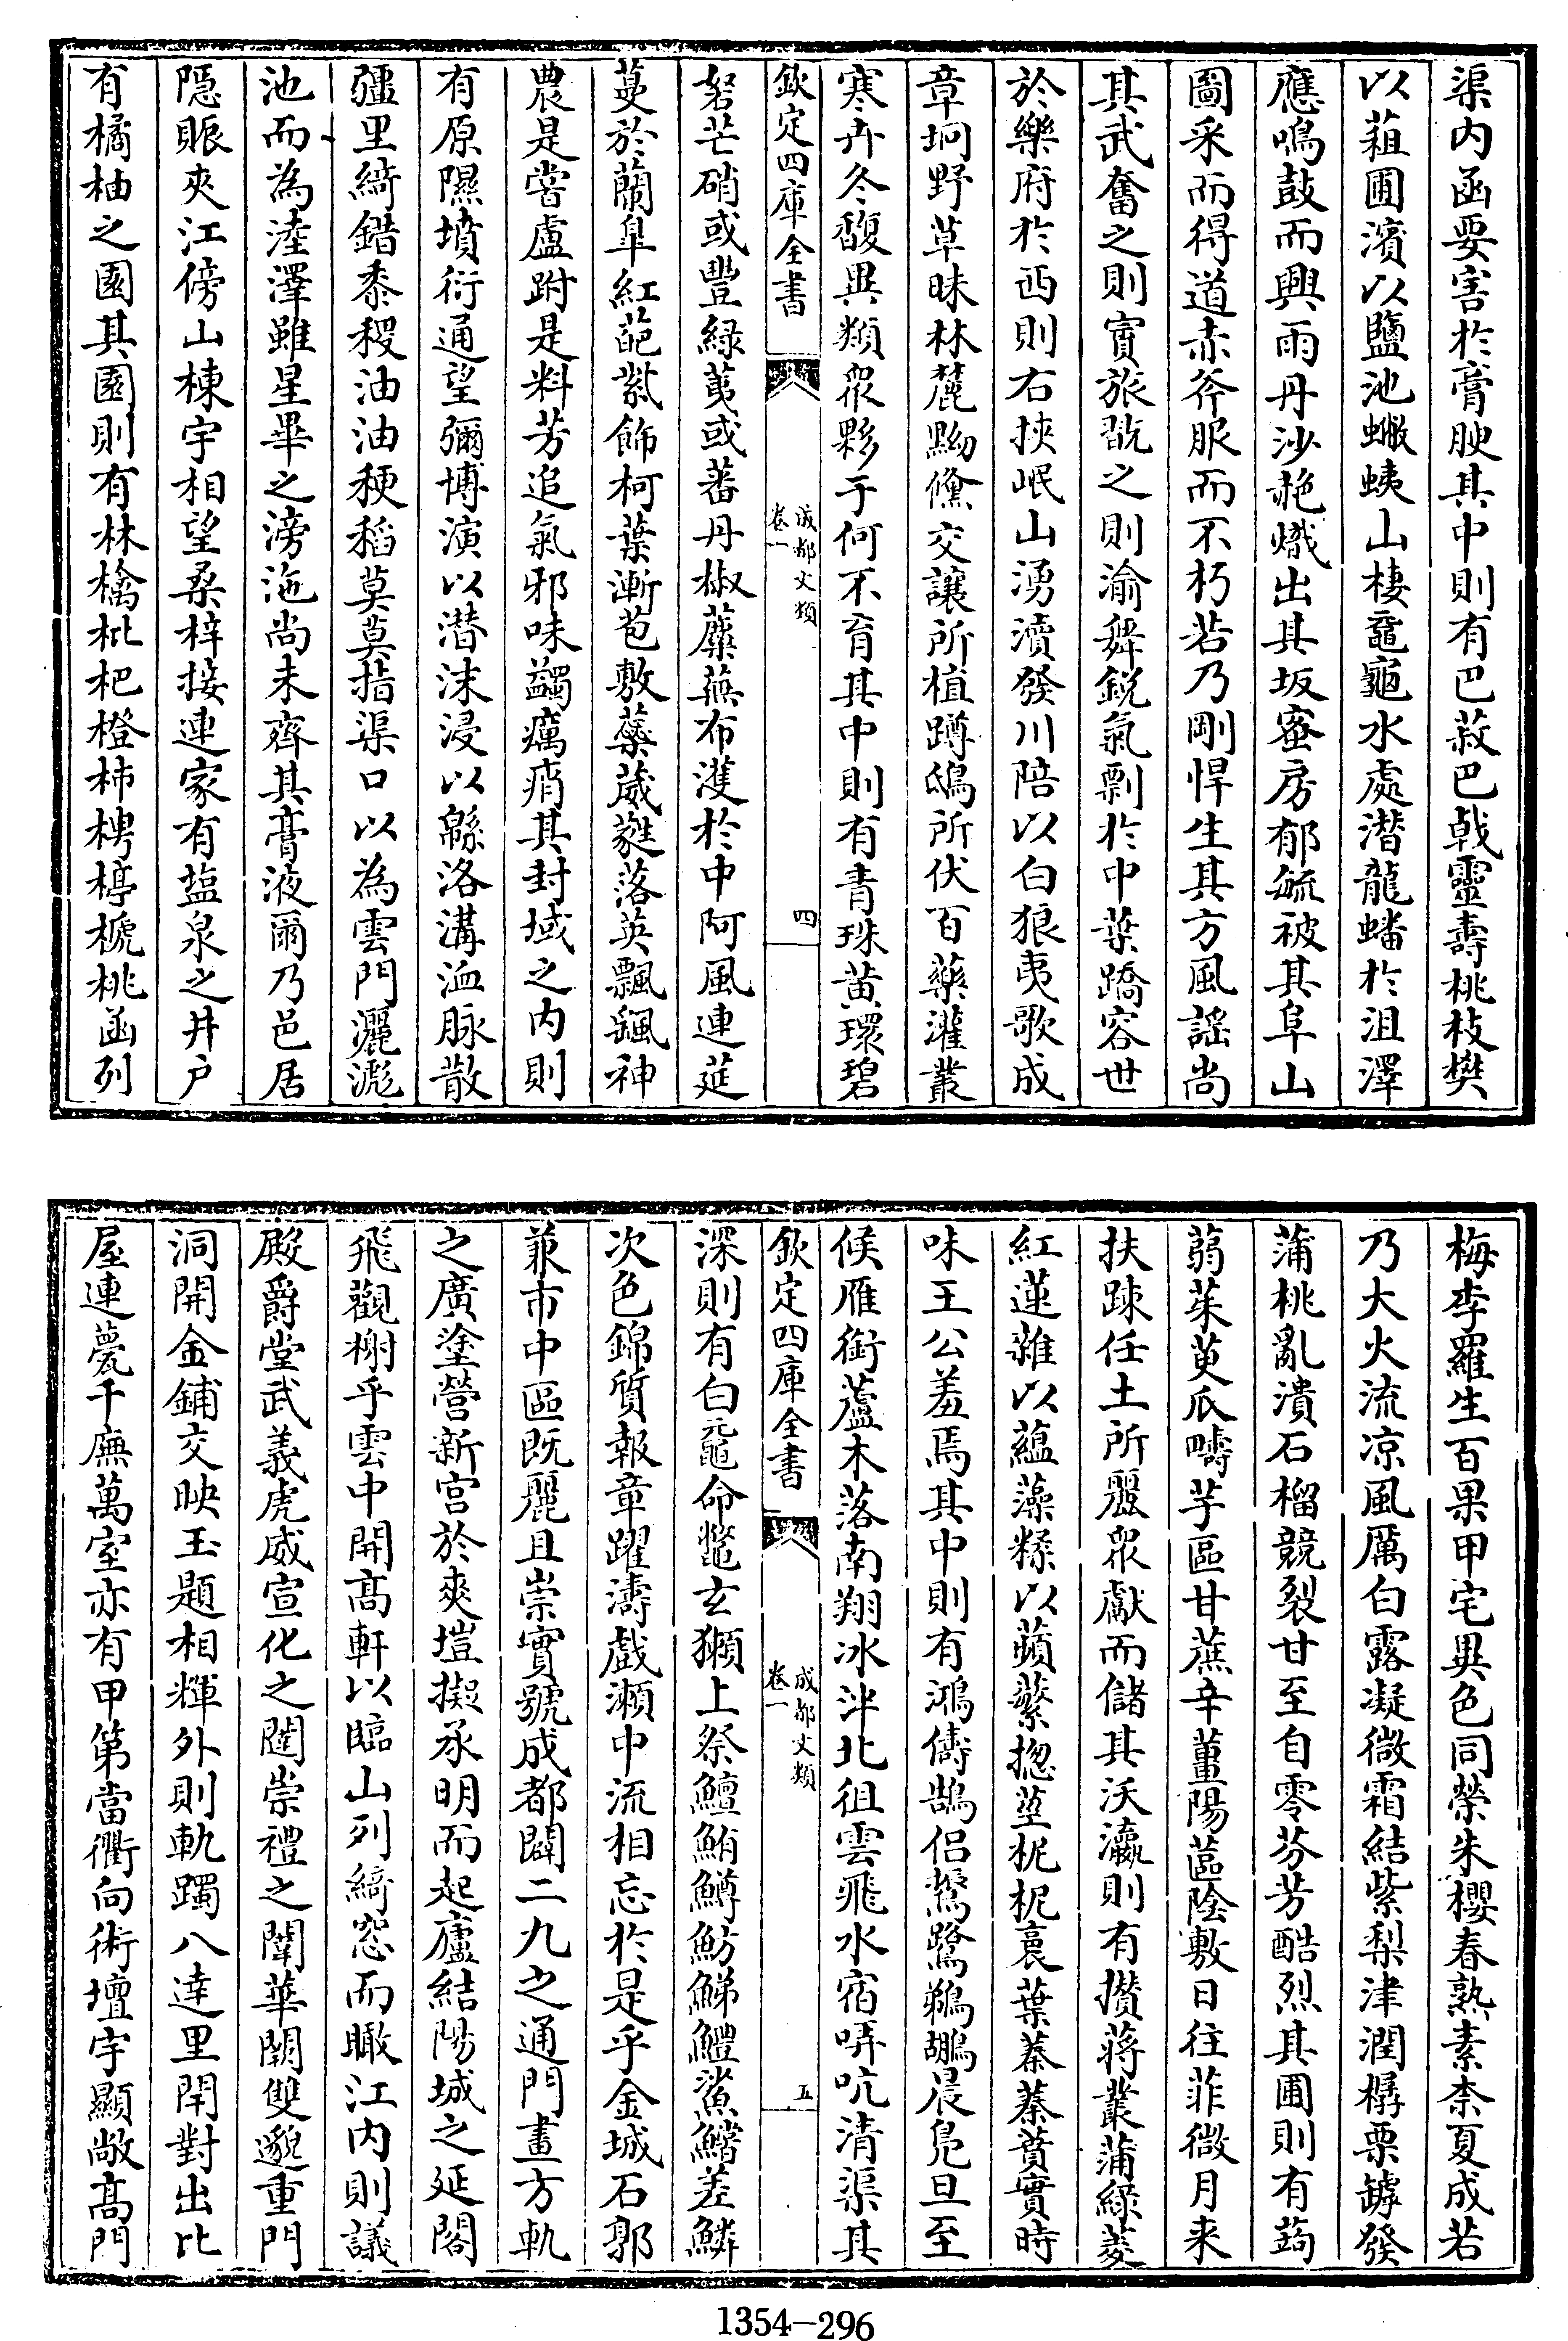 渠内函要害於膏腴其中則有巴菽巴戟靈壽桃枝樊
以蒩圃濱以鹽池蟞蛦山棲黿龜水處潛龍蟠於沮澤
應鳴鼓而興雨丹沙赩熾出其坂蜜房郁毓被其阜山
圖采而得道赤斧服而不朽若乃剛悍生其方風謡尚
其武奮之則賨旅翫之則渝舞鋭氣剽於中葉蹻容世
於樂府於西則右挾岷山湧瀆發川陪以白狼夷歌成
章坰野草昧林麓黝儵交讓所植蹲鴟所伏百藥灌叢
寒卉冬馥異類衆夥于何不育其中則有青珠黄環碧
欽定四庫全書
成都文類
卷一
四
砮芒硝或豐緑荑或蕃丹椒蘪蕪布濩於中阿風連莚
蔓於蘭臯紅葩紫飾柯葉漸苞敷蘂葳蕤落英飄颻神
農是嘗盧跗是料芳追氣邪味蠲癘痟其封域之内則
有原隰墳衍通望彌博演以潜沬浸以緜洛溝洫脉散
疆里綺錯黍稷油油稉稻莫莫指渠口以為雲門灑滮
池而為淕澤雖星畢之滂沲尚未齊其膏液爾乃邑居
隱賑夾江傍山棟宇相望桑梓接連家有塩泉之井户
有橘柚之園其園則有林檎枇杷橙柿梬楟榹桃函列
梅李羅生百果甲宅異色同榮朱櫻春熟素柰夏成若
乃大火流凉風厲白露凝微霜結紫梨津潤樼栗罅發
蒲桃亂潰石榴競裂甘至自零芬芳酷烈其圃則有蒟
蒻茱萸瓜疇芋區甘蔗辛薑陽蓲陰敷日往菲微月来
扶踈任土所麗衆獻而儲其沃瀛則有攢蒋叢蒲緑菱
紅蓮雜以藴藻糅以蘋蘩揔莖柅柅裛葉蓁蓁蕡實時
味王公羞焉其中則有鴻儔鵠侣鷺鷺鵜鶘晨鳧旦至
候雁銜蘆木落南翔冰泮北徂雲飛水宿哢吭清渠其
欽定四庫全書
成都文類
卷一
五
深則有白黿命鼈玄獺上祭鱣鮪鱒魴鮷鱧鯊鱨差鱗
次色錦質報章躍濤戲瀬中流相忘於是乎金城石郭
兼帀中區既麗且崇實號成都闢二九之通門畫方軌
之廣塗營新宫於爽塏擬承明而起廬結陽城之延閣
飛觀榭乎雲中開髙軒以臨山列綺窓而瞰江内則議
殿爵堂武義虎威宣化之闥崇禮之闈華闕雙邈重門
洞開金鋪交映玉題相輝外則軌躅八達里閈對出比
屋連甍千廡萬室亦有甲第當衢向術壇宇顯敞髙門
1354-296